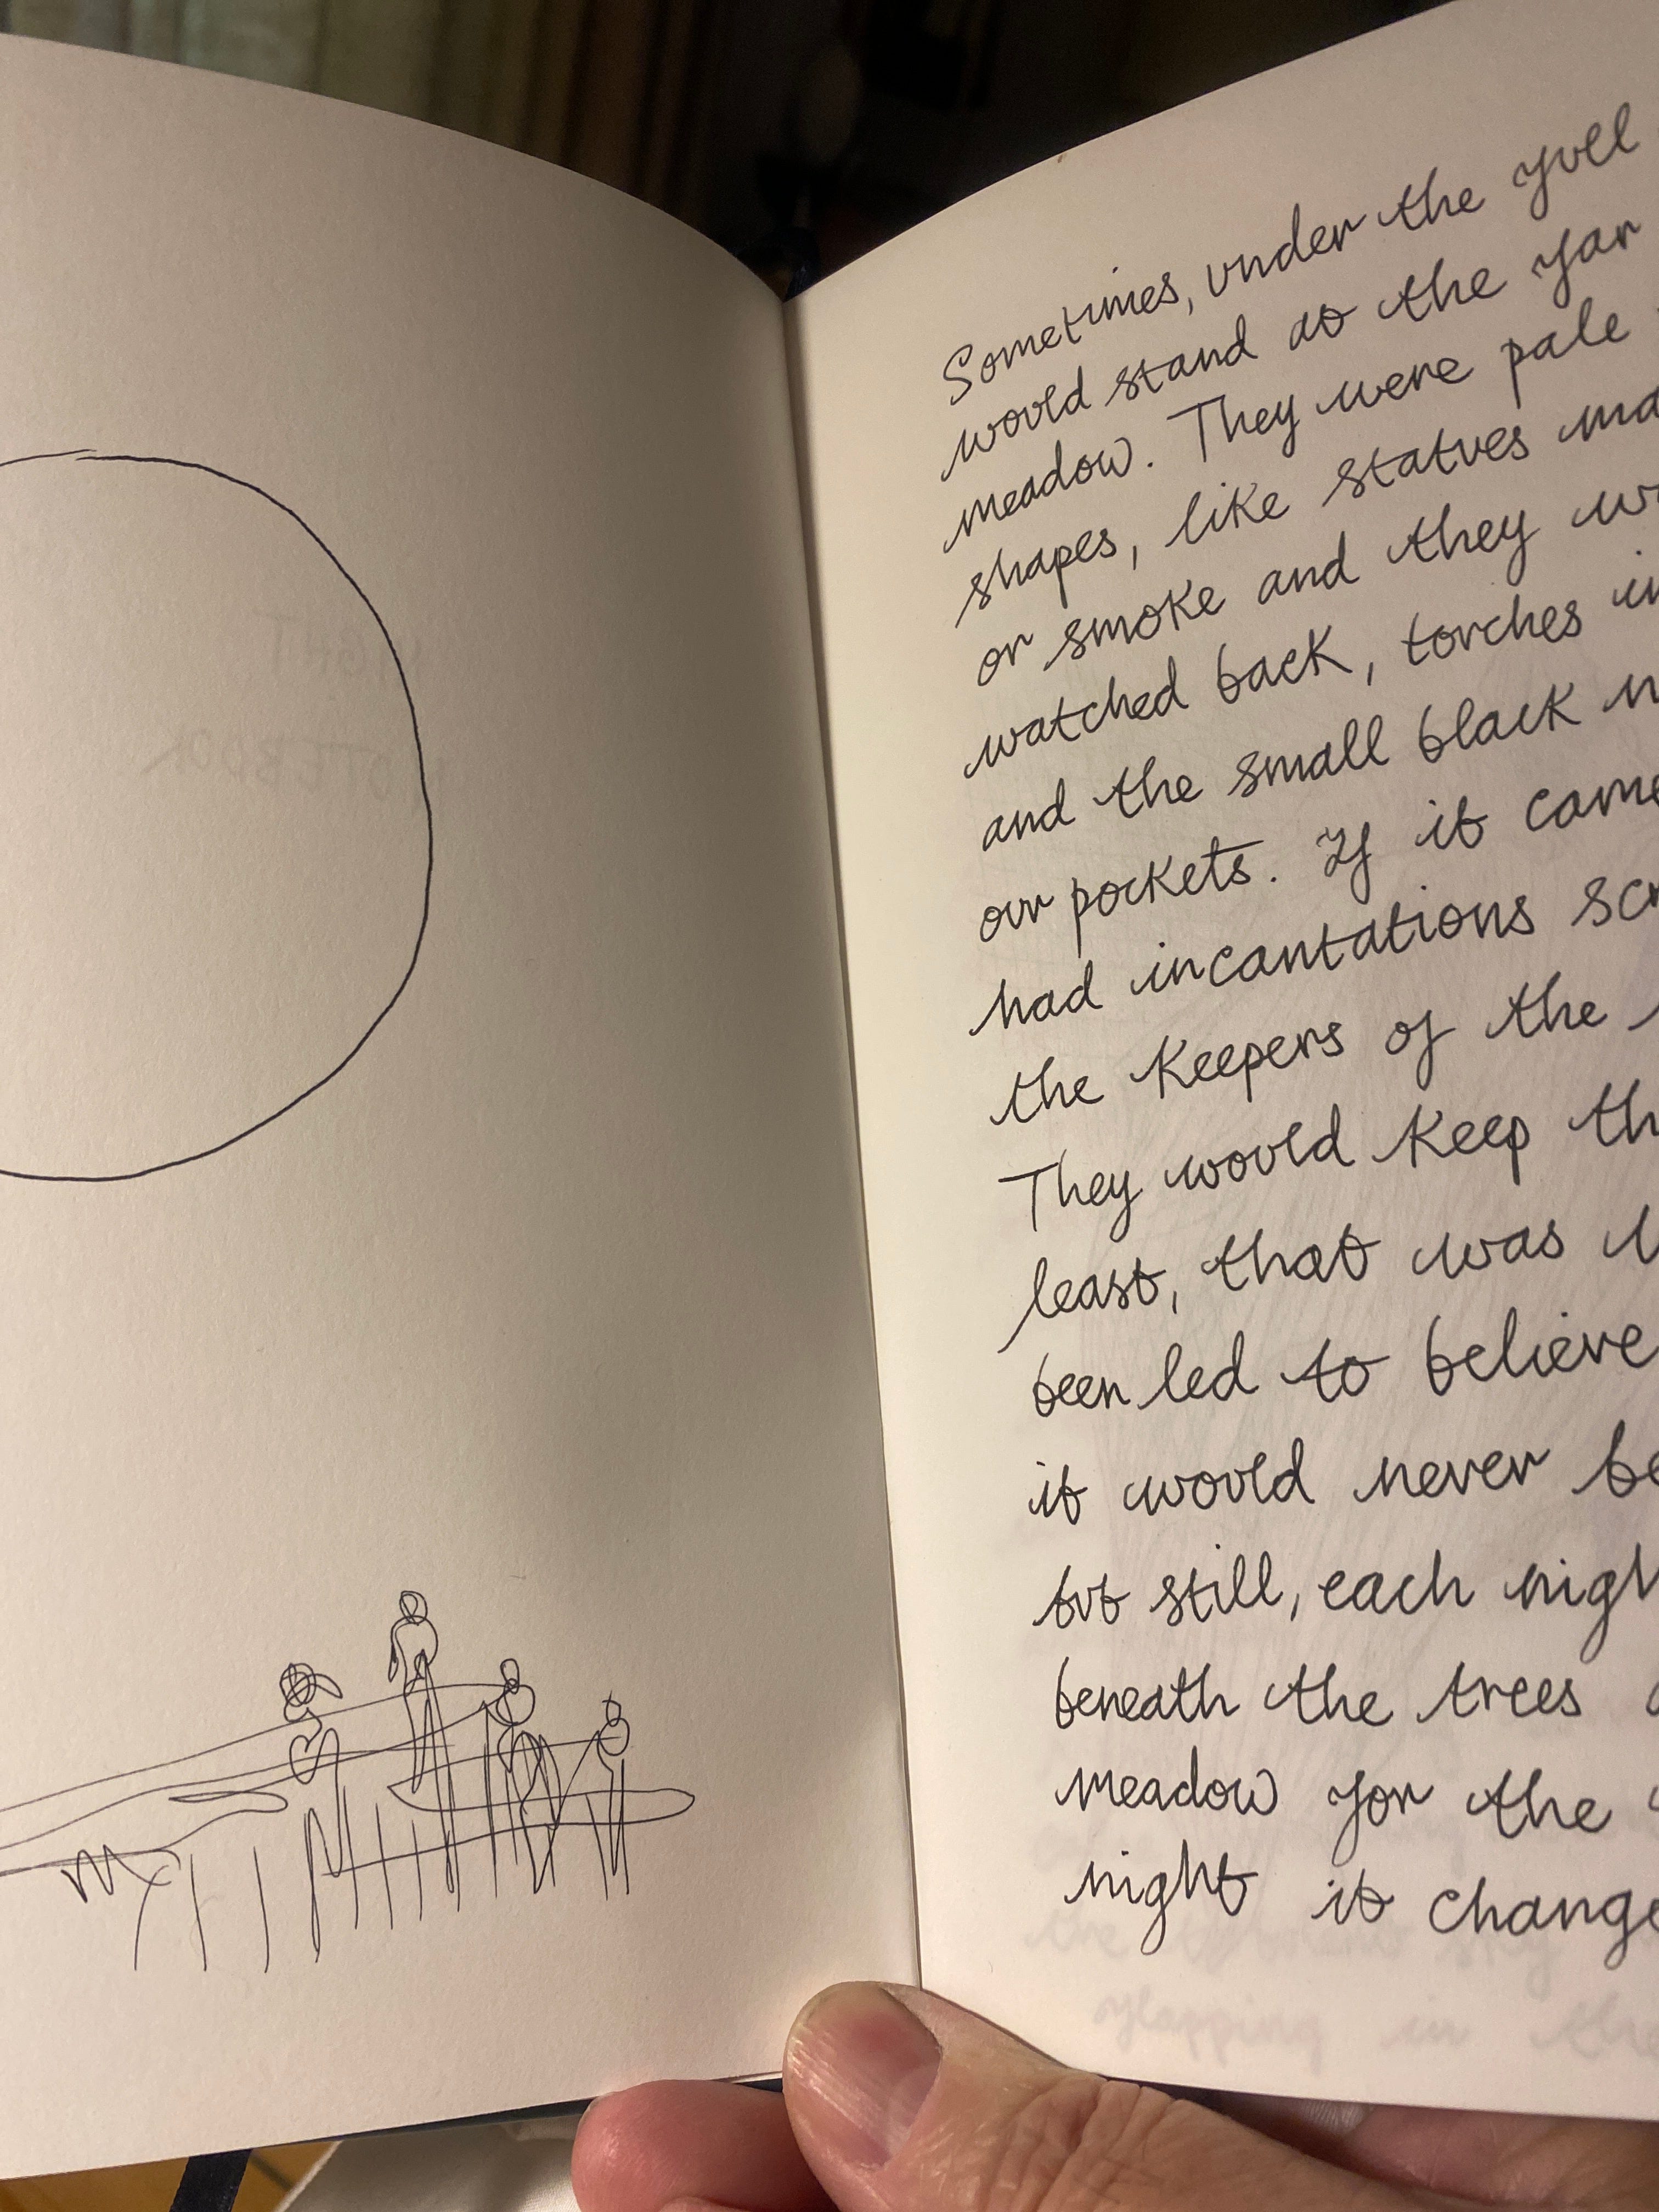 Sometimes, under the full
would stand at the far
meadow. They were pale
shapes, like statues
or smoke and they
watched back, torches
and the small black
our pockets. If it came
had incantations
the Keepers of the
They would keep
least, that was
been led to believe
it would never
but still, each
beneath the trees
meadow for the
night it
flapping in the